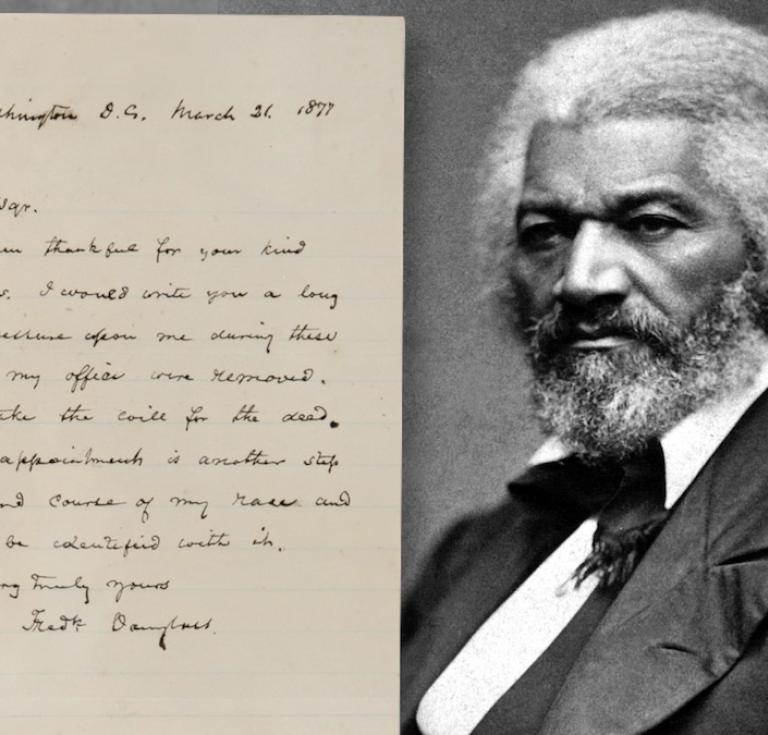 shington D.C. March 21. 1877
Esqr.
am thankful for your kind
s. I would write you a long
pressure upon me during these
my office were removed.
ake the will for the deed.
appointment is another step
nd course of my race and
be identified with it.
ry Truly yours
Fredk Douglass.